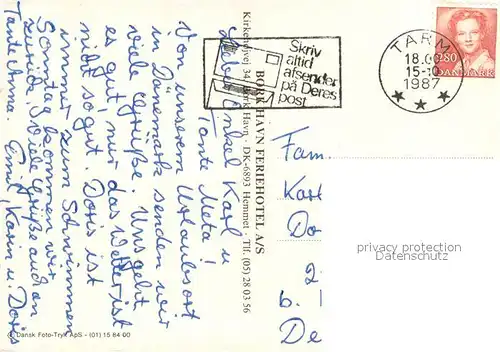 Lieber Onkel Karl u
Tante Meta!
Von unserem Urlaubsort
in Dänemark senden wir
viele Grüße. Uns geht
es gut, nur das Wetter ist
nicht so gut. Doris ist
immer zum Schwimmen
Sonntag kommen wir
zurück. Viele Grüße auch an
Tante Anna. Emil, Karin u. Doris
BORK HAVN FERIEHOTEL A/S
Kirkehøjvej 34 Bork Havn · DK-6893 Hemmet · Tlf. (05) 28 03 56
© Dansk Foto-Tryk ApS - (01) 15 84 00
Skriv
altid
afsender
på Deres
post
TARM
18.00
15-10
1987
280
DANMARK
Fam
Karl
Do
2
b. I
De
privacy protection
Datenschutz